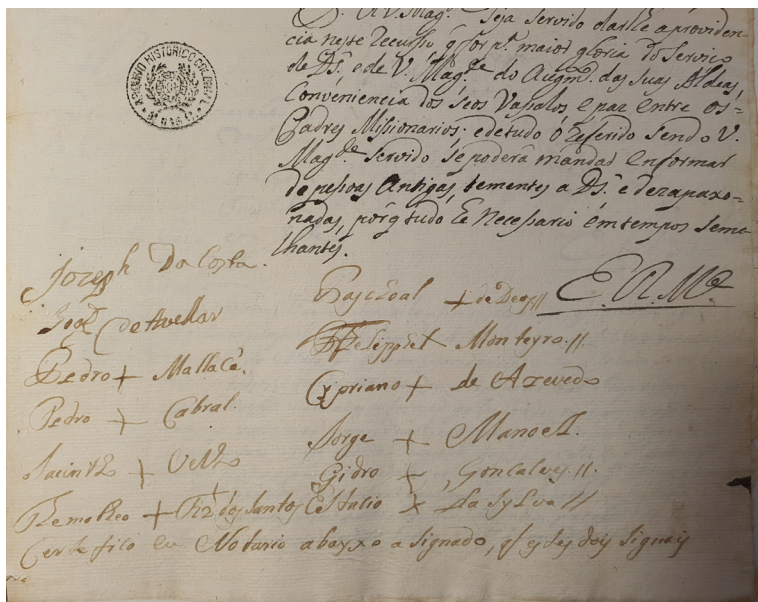 ARQUIVO HISTORICO COLONIAL
P. a V. Magde. seja servido darlhe a providen-
cia neste Recurso, q for pa. maior gloria do serviço
de Ds. e de V. Magde. do Augmo. das suas Aldeas,
Conveniencia dos seos Vaſsalos, e paz entre os=
Padres Miſsionarios; e de tudo o referido sendo V.
Magde. servido se poderá mandar enformar
de peſsoas Antigas, tementes a Ds. e dezapaxo=
nadas, porq tudo he neceſsario em tempos seme-
lhantes.
E. R. Mce
Joseph Da Costa.
de Avellar
Pedro + Mallacâ.
Pedro + Cabral.
+
+ dos Santos
Paschoal + de Deos //
Felippe + Monteyro. //
Cypriano + de Azevedo
Jorge + Manoel.
Gidro + Goncalves. //
Estacio + da Sylva //
Certefico eu Notario abayxo asignado, q estes dois signais